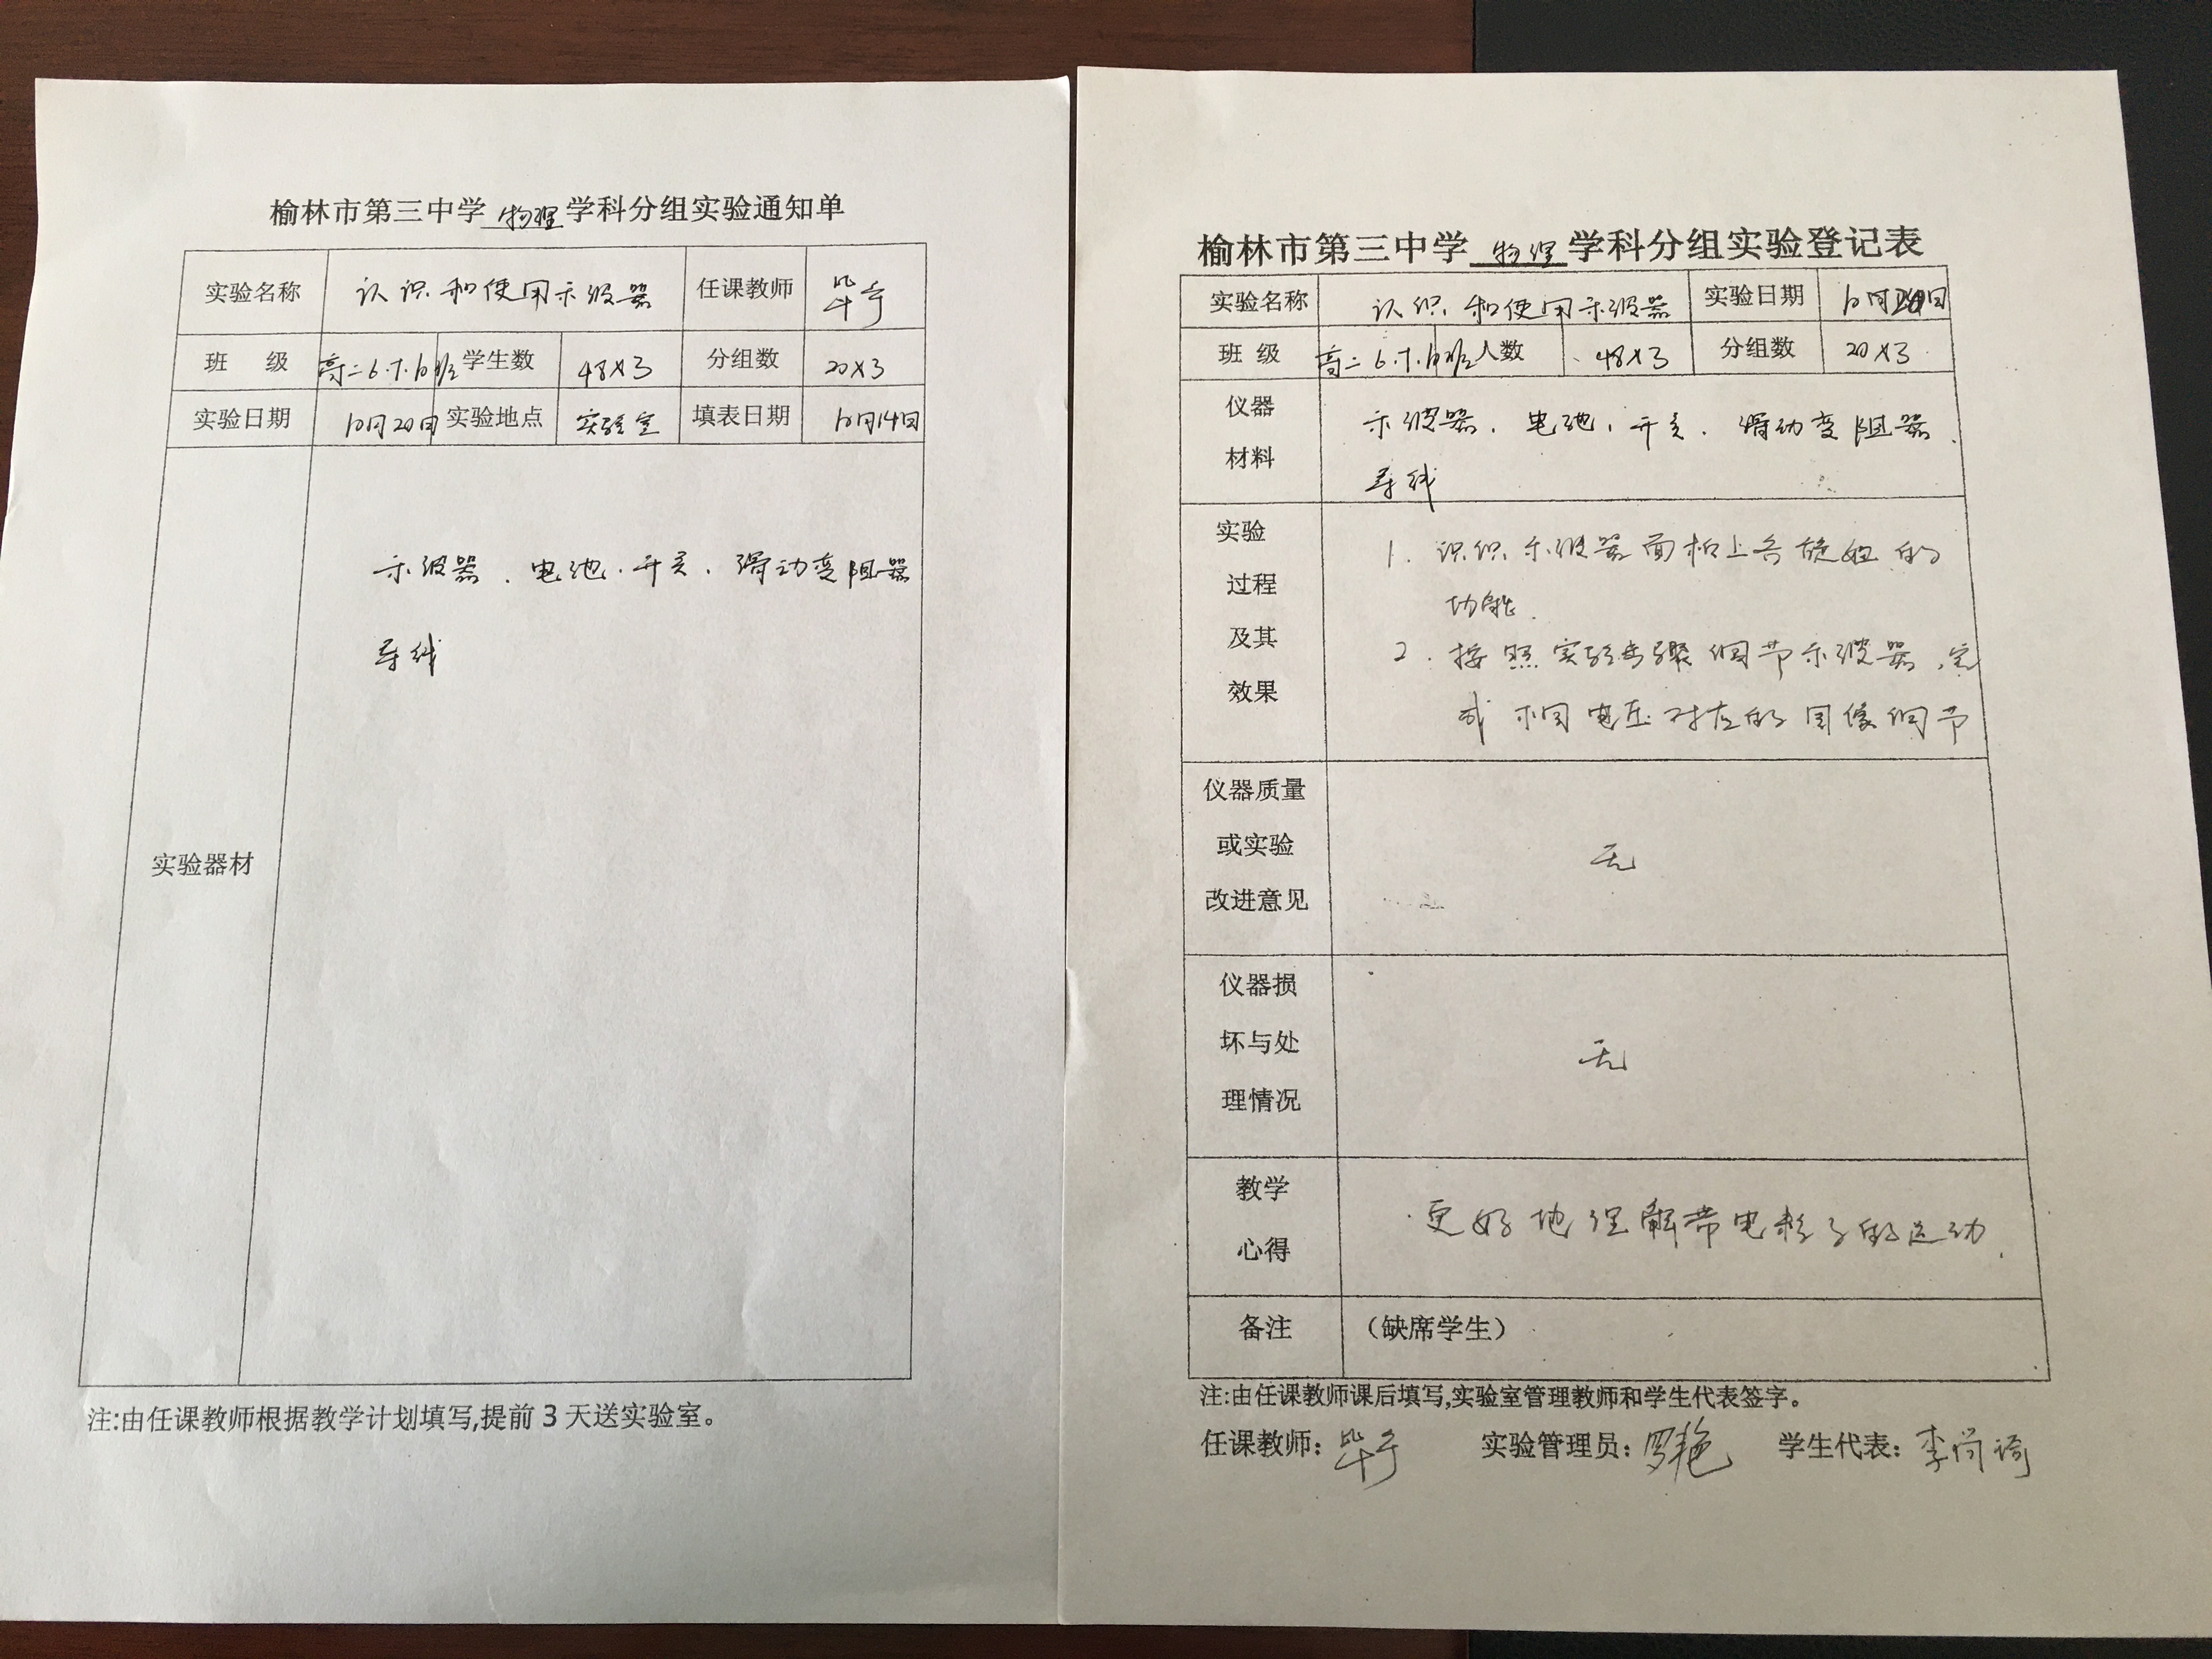 榆林市第三中学 物理 学科分组实验通知单
实验名称 认识和使用示波器 任课教师
班 级 高二6.7.10班 学生数 48×3 分组数 20×3
实验日期 10月20日 实验地点 实验室 填表日期 10月14日
实验器材
示波器、电池、开关、滑动变阻器
导线
注:由任课教师根据教学计划填写,提前3天送实验室。
榆林市第三中学 物理 学科分组实验登记表
实验名称 认识和使用示波器 实验日期 10月20日
班 级 高二6.7.10班 人数 48×3 分组数 20×3
仪器
材料
示波器、电池、开关、滑动变阻器、
导线
实验
过程
及其
效果
1. 识识示波器面板上各旋钮的
功能.
2. 按照实验步骤调节示波器,完
成不同电压对应的图像调节
仪器质量
或实验
改进意见
无
仪器损
坏与处
理情况
无
教学
心得
更好地理解带电粒子的运动.
备注 (缺席学生)
注:由任课教师课后填写,实验室管理教师和学生代表签字。
任课教师: 实验管理员:罗艳 学生代表:李尚